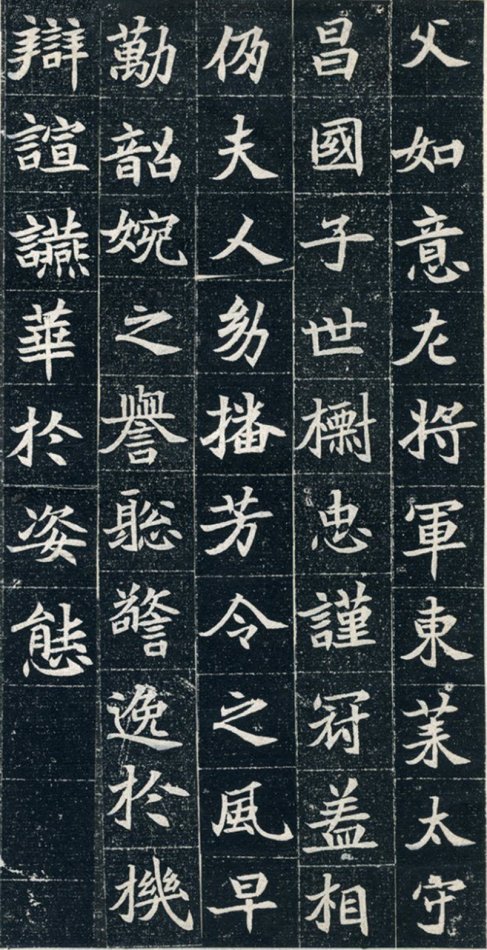 父如意左將軍東莱太守
昌國子世樹忠謹冠盖相
仍夫人幼播芳令之風早
勤韶婉之譽聡警逸於機
辯諠讌華於姿態